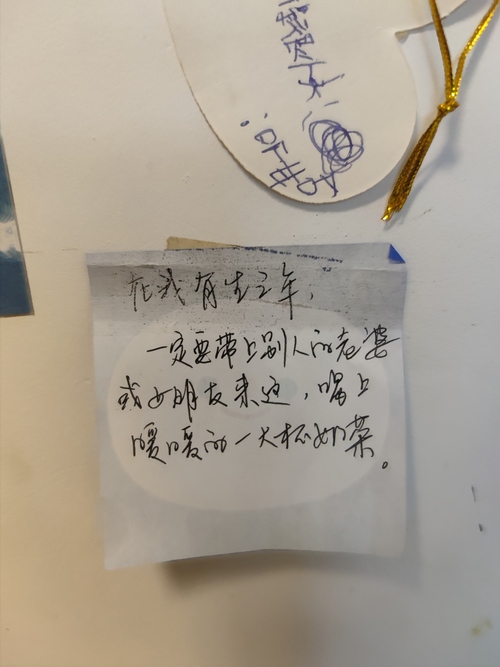 在我有生之年，
一定要带上别人的老婆
或女朋友来这，喝上
暖暖的一大杯奶茶。